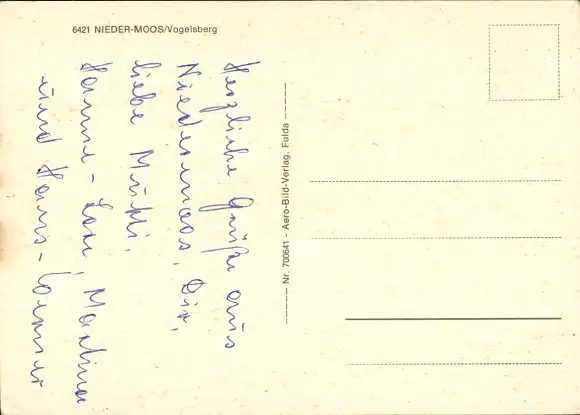 6421 NIEDER-MOOS/Vogelsberg
Herzliche Grüße aus
Niedermoos, Dir,
liebe Mutti,
Hanne-Lore, Martina
und Hans-
Nr. 700641 - Aero-Bild-Verlag, Fulda